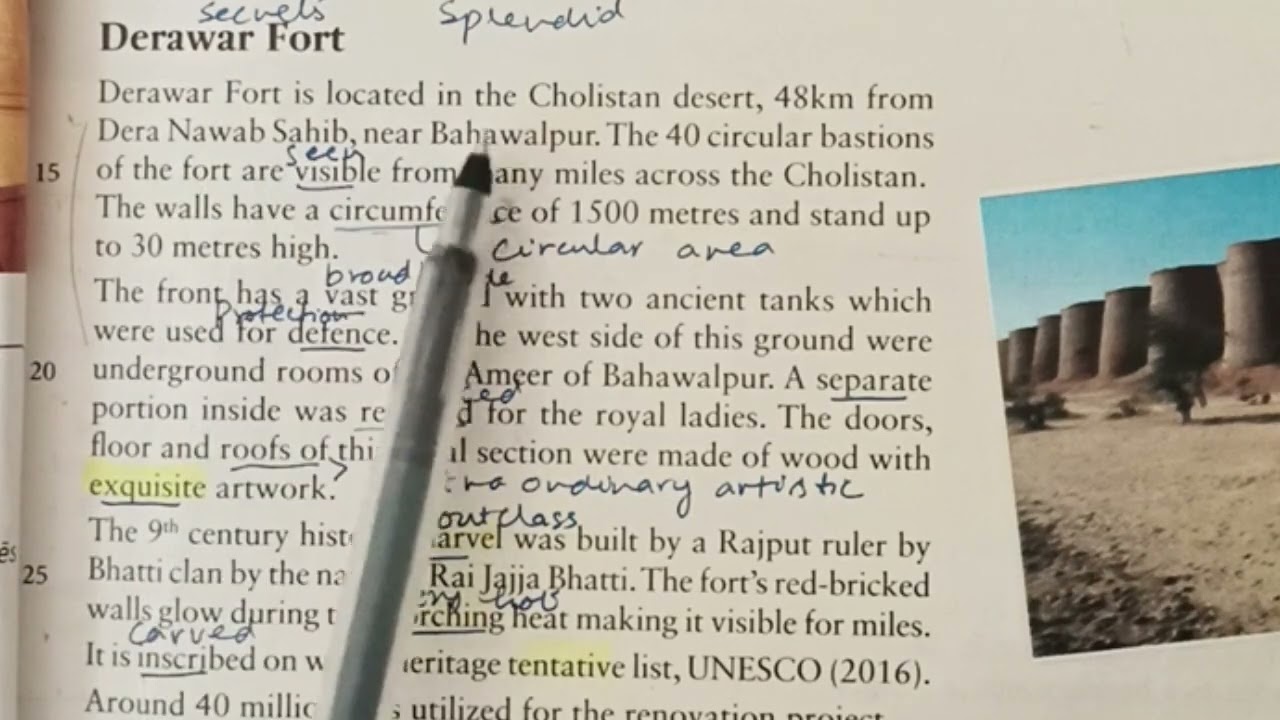 secrets Splendid
Derawar Fort
Derawar Fort is located in the Cholistan desert, 48km from
Dera Nawab Sahib, near Bahawalpur. The 40 circular bastions
seen
15 of the fort are visible from many miles across the Cholistan.
The walls have a circumfe ce of 1500 metres and stand up
to 30 metres high. circular area
broad
The front has a vast with two ancient tanks which
Protection
were used for defence. he west side of this ground were
20 underground rooms of Ameer of Bahawalpur. A separate
ed
portion inside was re d for the royal ladies. The doors,
floor and roofs of thi al section were made of wood with
exquisite artwork. ordinary artistic
outclass
The 9th century hist arvel was built by a Rajput ruler by
25 Bhatti clan by the na Rai Jajja Bhatti. The fort's red-bricked
hot
walls glow during t rching heat making it visible for miles.
Carved
It is inscribed on w eritage tentative list, UNESCO (2016).
Around 40 millio s utilized for the renovation project